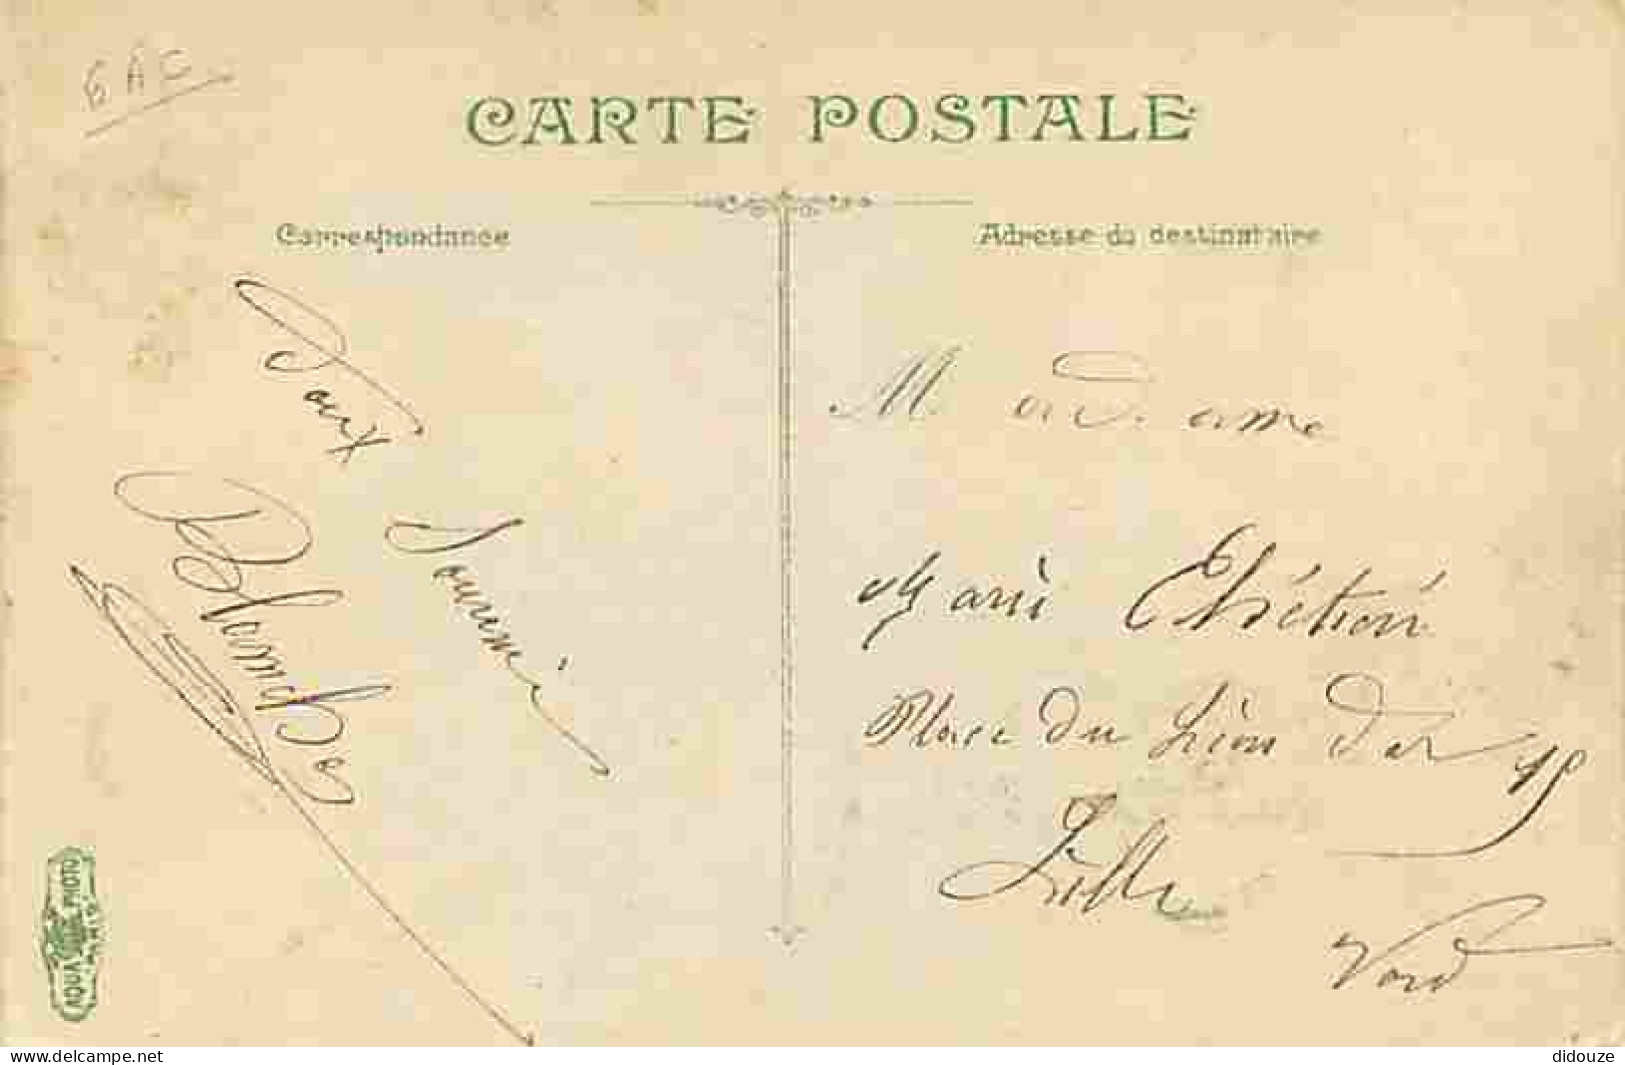 6AC
CARTE POSTALE
Correspondance
Adresse du destinataire
Doux
Souvenir
Blanche
Madame
Marie
Place du Lion d'or 15
Lille
Nord
AQUA PHOTO
PARIS
www.delcampe.net
didouze